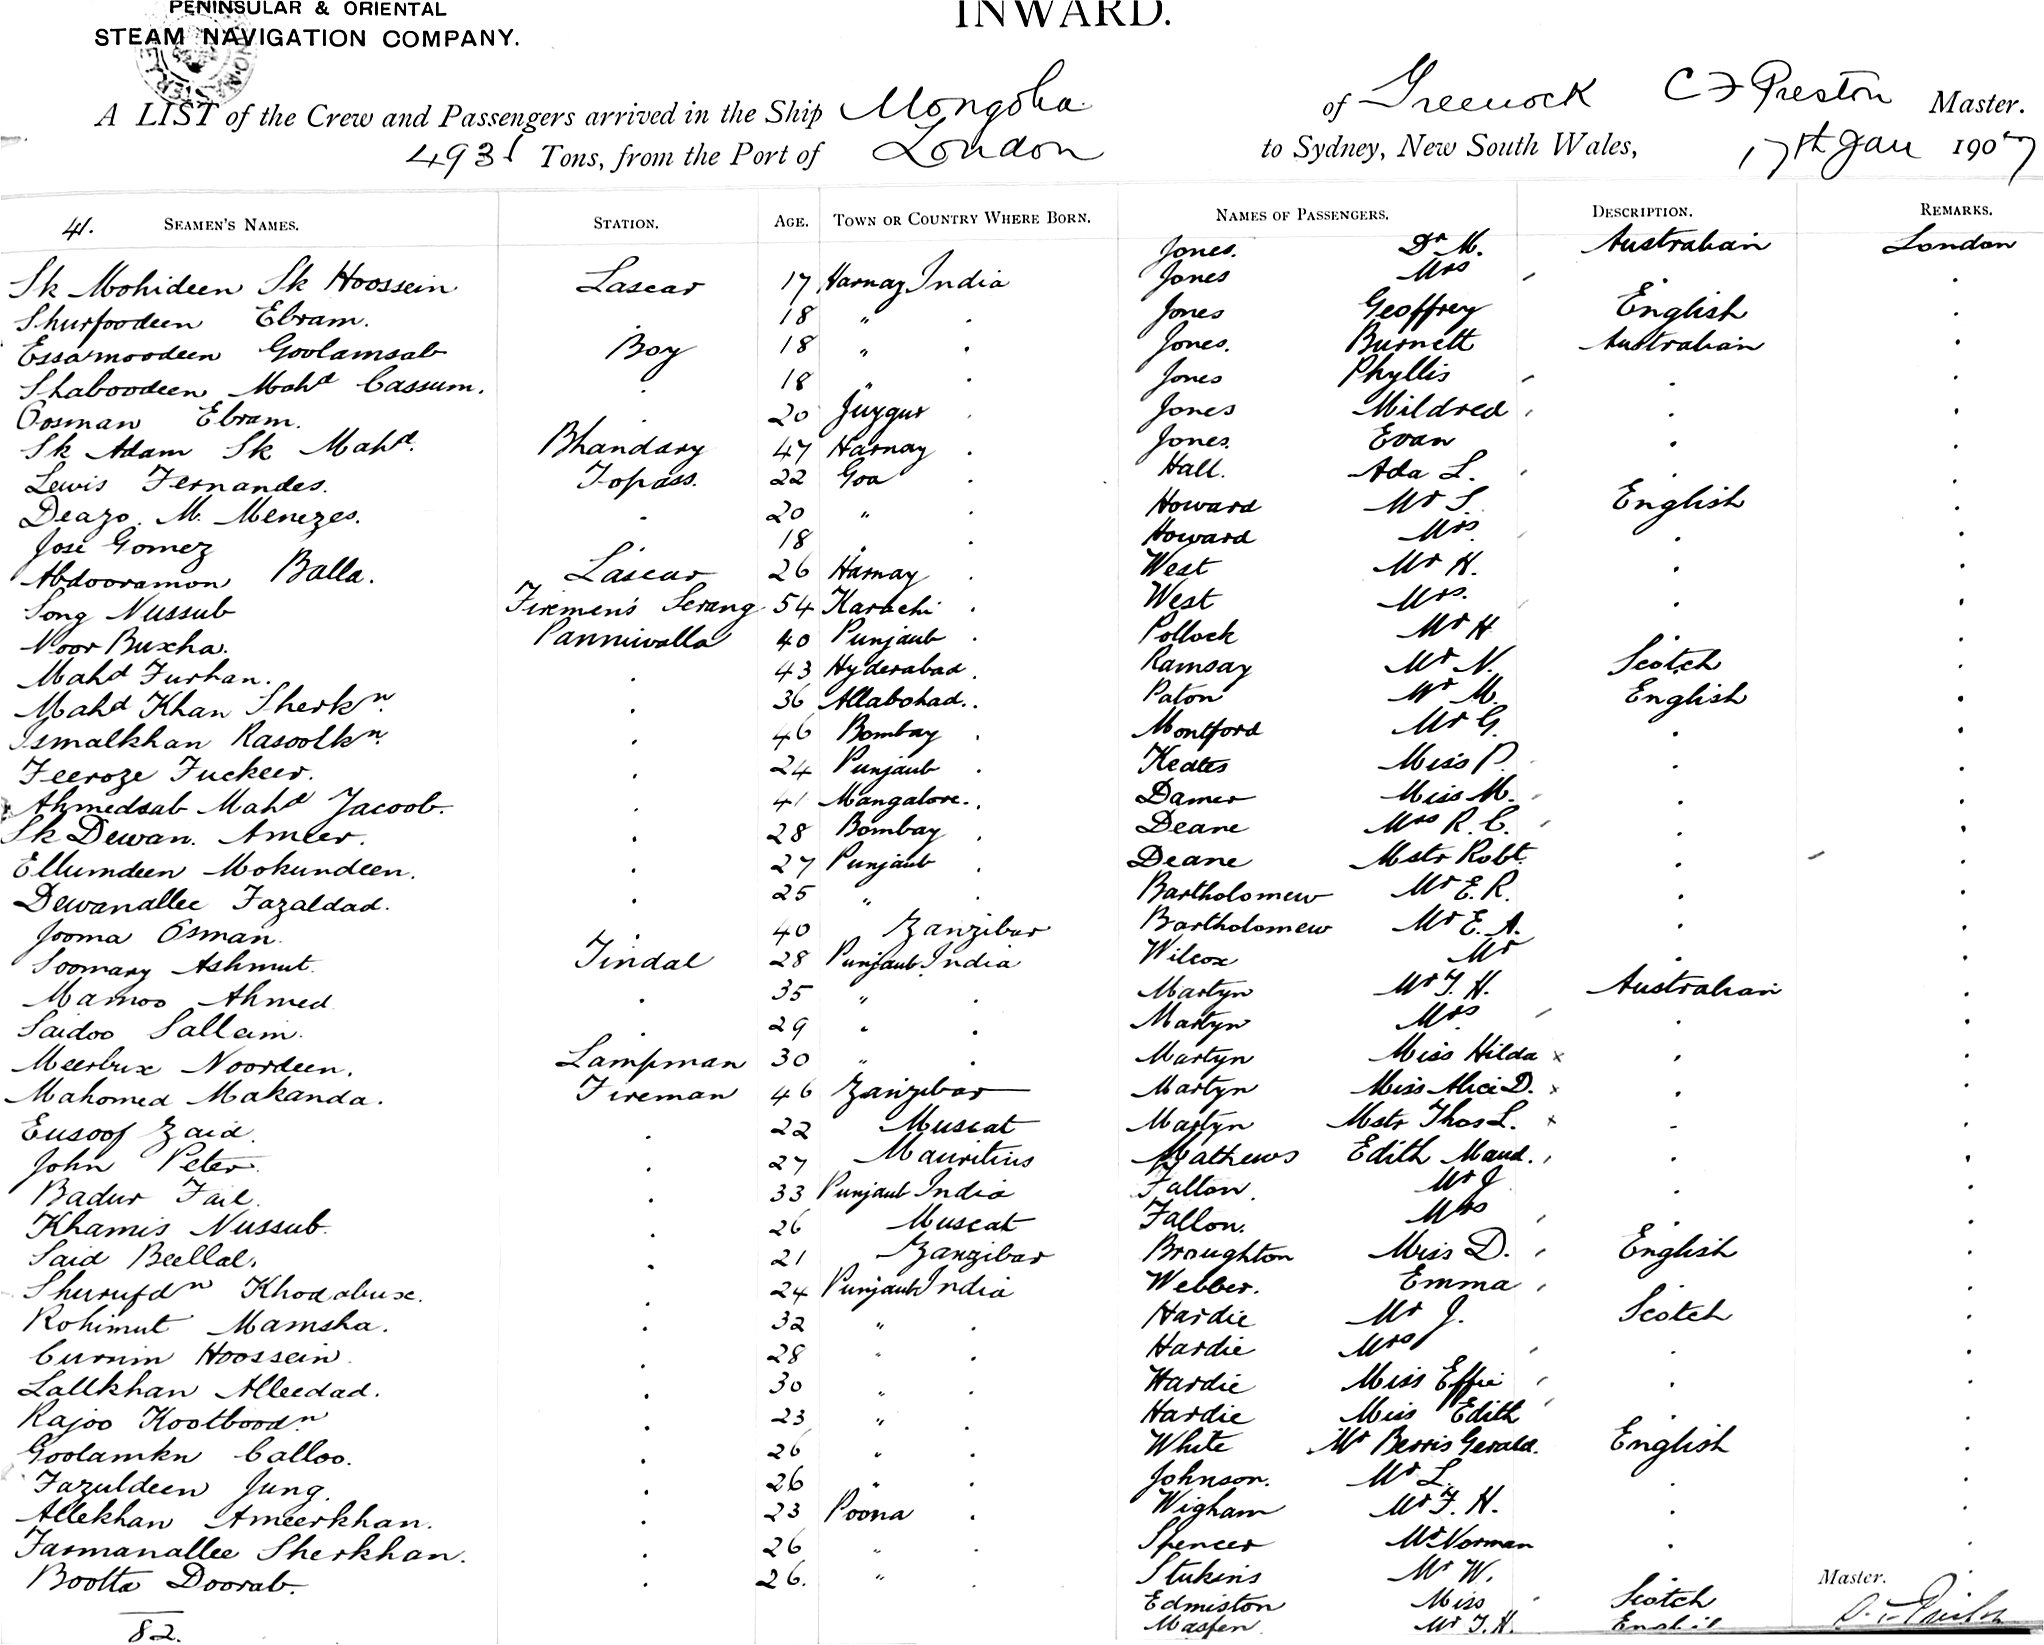 PENINSULAR & ORIENTAL
STEAM NAVIGATION COMPANY.
INWARD.
A LIST of the Crew and Passengers arrived in the Ship Mongolia of Greenock C F Preston Master.
4931 Tons, from the Port of London to Sydney, New South Wales, 17th Jan 1907
41. SEAMEN'S NAMES. STATION. AGE. TOWN OR COUNTRY WHERE BORN. NAMES OF PASSENGERS. DESCRIPTION. REMARKS.
Jones. Dr M. Australian London
Sk Mohideen Sk Hoossein Lascar 17 Harnay India Jones Mrs
Shurfoodeen Ebram. 18 " Jones Geoffrey English
Essamoodeen Goolamsab Boy 18 " Jones. Burnett Australian
Shaboodeen Mahd Cassum. 18 " Jones Phyllis
Oosman Ebram. 20 Juygur Jones Mildred
Sk Adam Sk Mahd. Bhandary 47 Harnay Jones. Evan
Lewis Fernandes. Topass. 22 Goa Hall. Ada L.
Deazo. M. Menezes. 20 " Howard Mr S. English
José Gomez 18 " Howard Mrs
Abdooramon Balla. Lascar 26 Harnay West Mr H.
Song Nussub Firemen's Serang 54 Karachi West Mrs.
Noor Buxha. Panniwalla 40 Punjaub Pollock Mr H
Mahd Furhan. 43 Hyderabad. Ramsay Mr N. Scotch
Mahd Khan Sherkn. 36 Allabohad. Paton Mr M. English
Ismalkhan Rasoolkn. 46 Bombay Montford Mr G.
Feeroze Fuckeer. 24 Punjaub Keates Miss P.
Ahmedsab Mahd Yacoob. 41 Mangalore. Damer Miss M.
Sk Dewan. Ameer. 28 Bombay Deane Mrs R. C.
Ellumdeen Mokundeen. 27 Punjaub Deane Mstr Robt.
Dewanallee Fazaldad. 25 " Bartholomew Mr E. R.
Jooma Osman. 40 Zanzibar Bartholomew Mr E. A.
Soomary Ashmut. Tindal 28 Punjaub India Wilcox Mr
Mamoo Ahmed 35 " Martyn Mr T. H. Australian
Saidoo Salleim. 29 " Martyn Mrs
Meerbux Noordeen. Lampman 30 " Martyn Miss Hilda x
Mahomed Makanda. Fireman 46 Zanzibar Martyn Miss Alice D. x
Eusoof Zaid. 22 Muscat Martyn Mstr Thos L. x
John Peter. 27 Mauritius Mathews Edith Maud.
Badur Fail. 33 Punjaub India Fallon. Mr J
Khamis Nussub. 26 Muscat Fallon. Mrs
Said Beellal. 21 Zanzibar Broughton Miss D. English
Shurufdn Khodabuxe. 24 Punjaub India Webber. Emma
Rohimut Mamsha. 32 " Hardie Mr J. Scotch
Curnim Hoossein. 28 " Hardie Mrs
Lallkhan Alleedad. 30 " Hardie Miss Effie
Rajoo Kootboodn 23 " Hardie Miss Edith
Goolamkn Calloo. 26 " White Mr Berris Gerald. English
Fazuldeen Jung. 26 " Johnson. Mr L.
Allekhan Ameerkhan. 23 Poona Wigham Mr F. H.
Farmanallee Sherkhan. 26 " Spencer Mr Norman
Boolta Doorab. 26. " Stukins Mr W.
Master.
Edmiston Miss Scotch
82. Masfen. Mr T. H. English